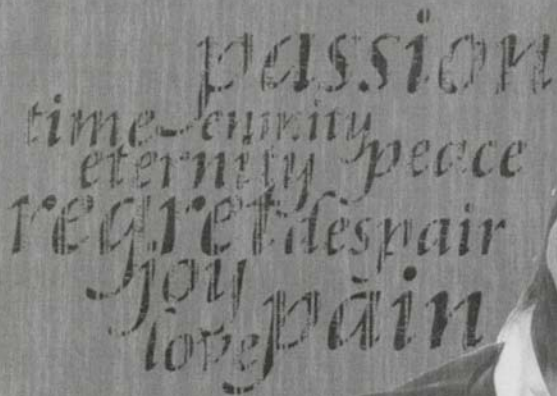 passion
time enmity
eternity peace
regret despair
joy
love pain